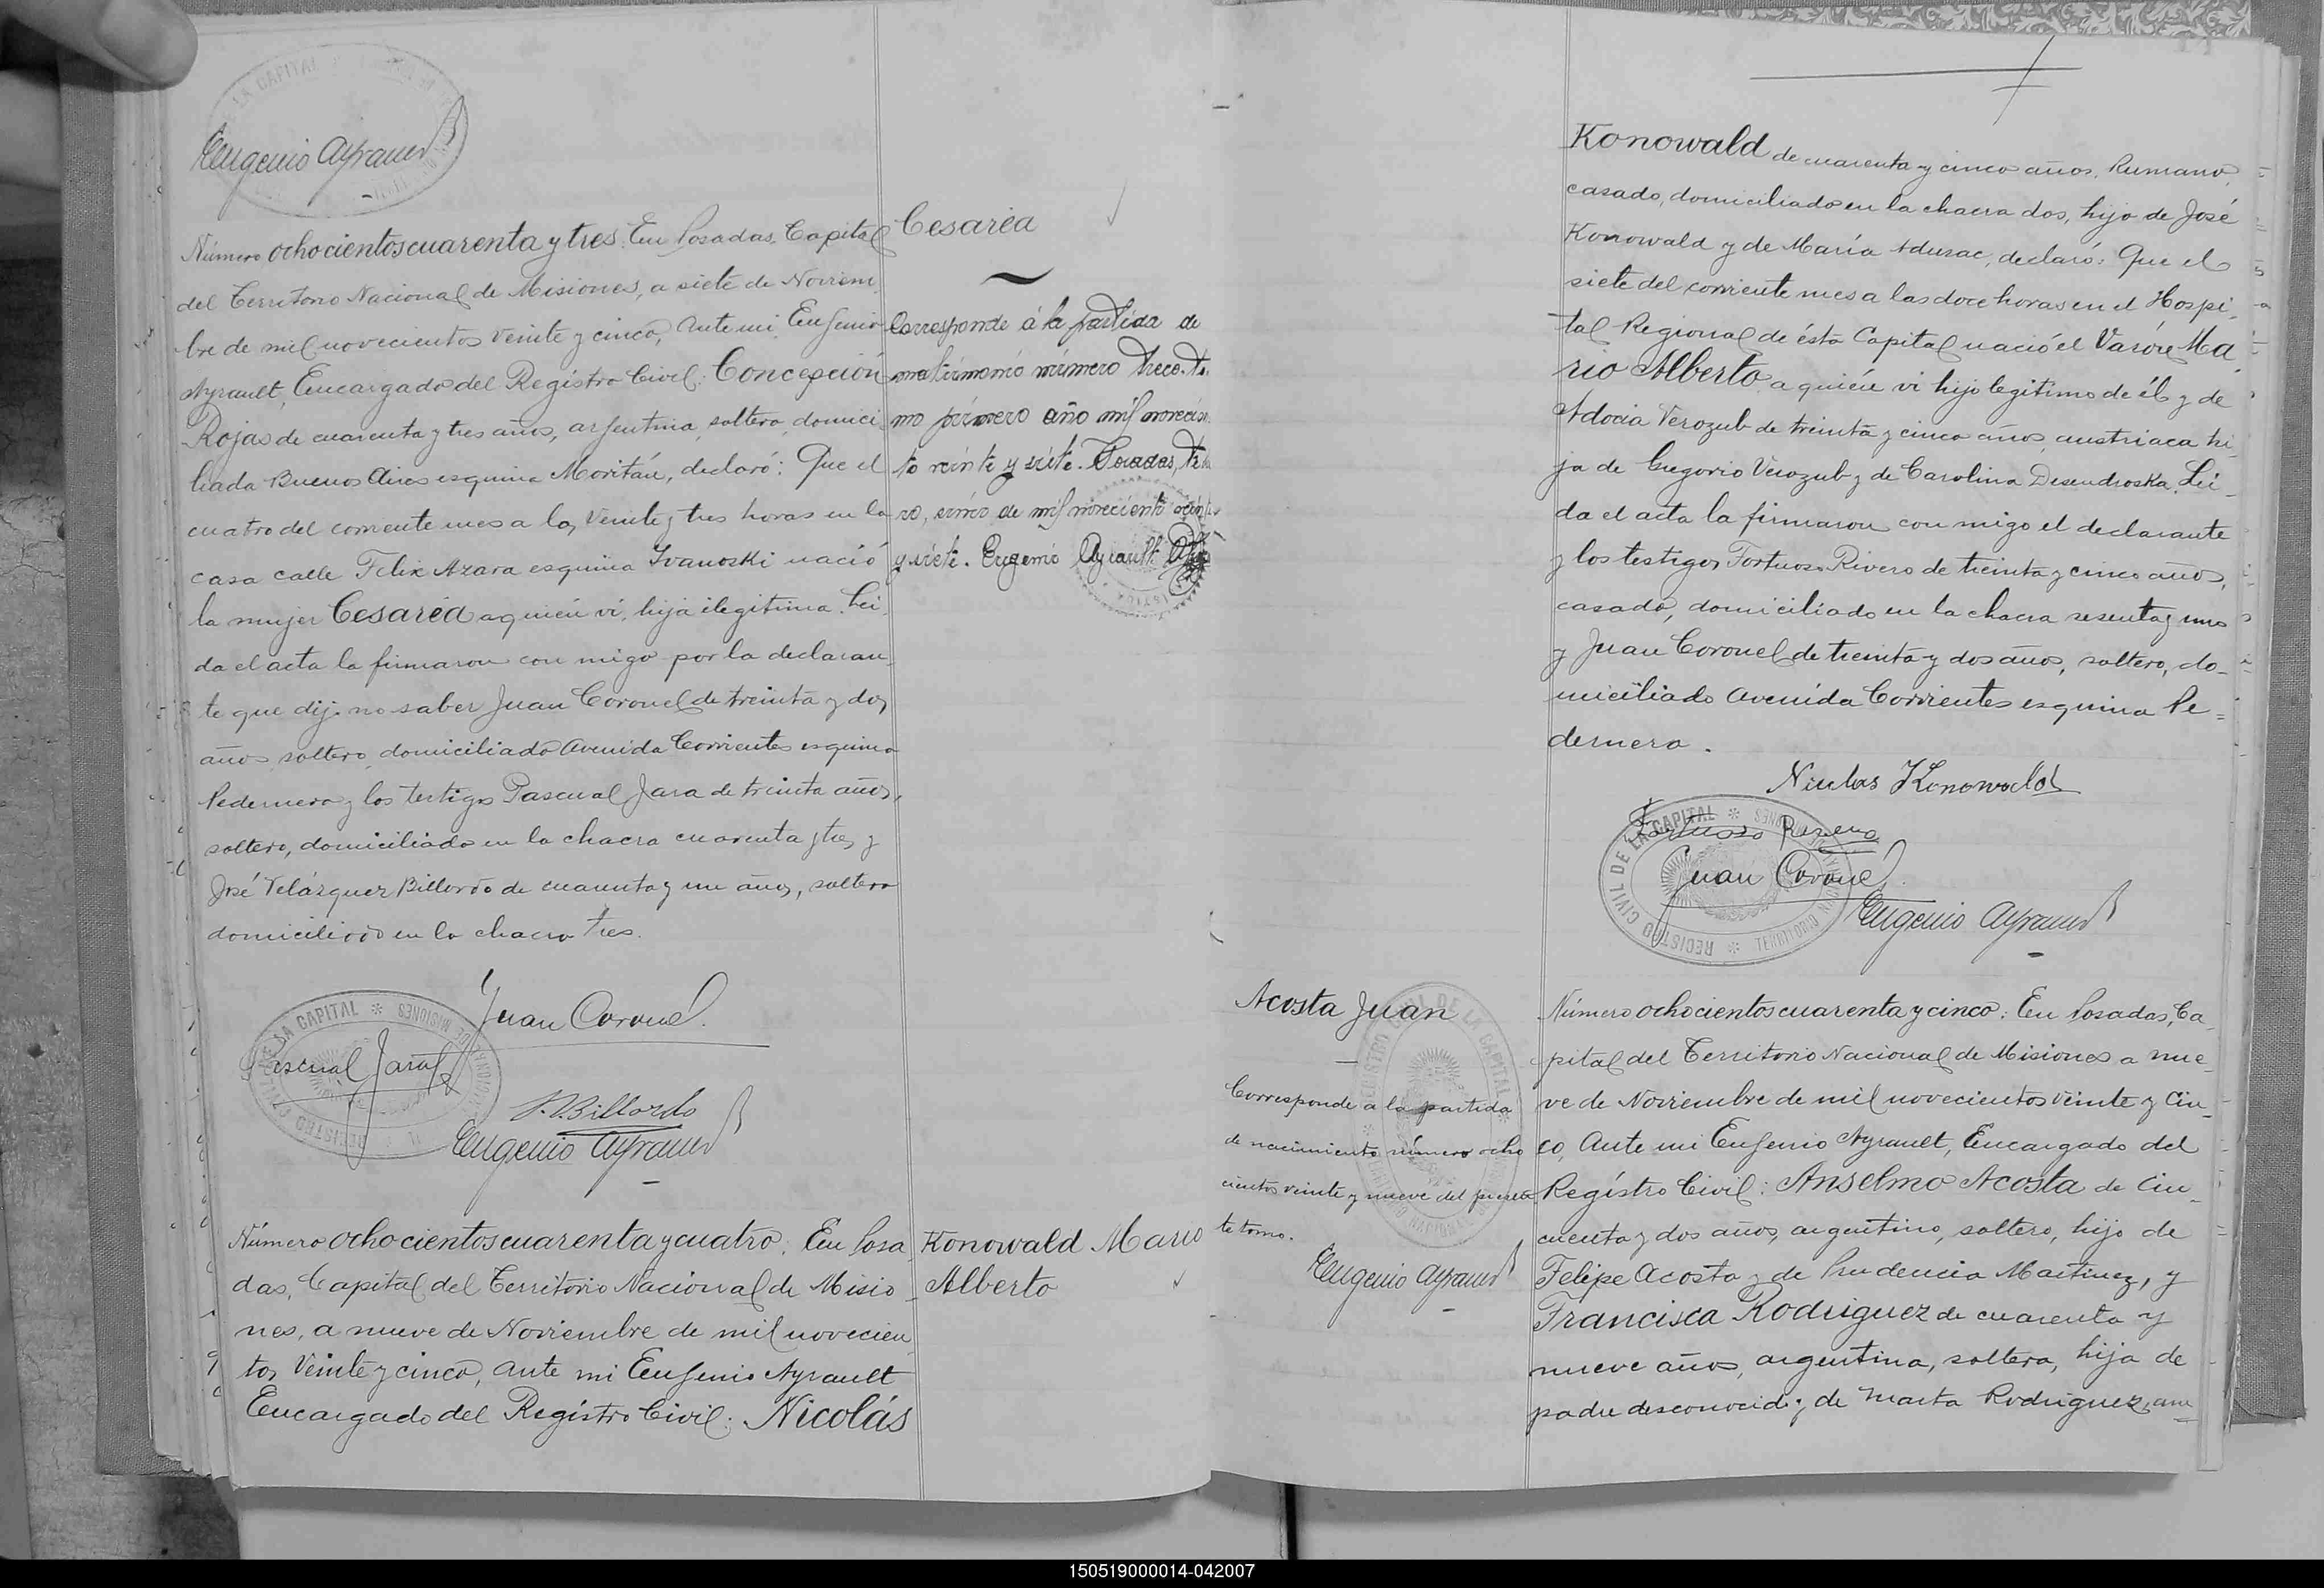 Eugenio Ayrault
Número ochocientos cuarenta y tres. En Posadas, Capital
del Territorio Nacional de Misiones, a siete de Noviem
bre de mil novecientos veinte y cinco, Ante mi Eugenio
Ayrault, Encargado del Registro Civil: Concepción
Rojas de cuarenta y tres años, argentina, soltera, domici
liada Buenos Aires esquina Moritán, declaró: Que el
cuatro del corriente mes a las veinte y tres horas en la
casa calle Felix Azara esquina Ivanoski nació
la mujer Cesarea a quien vi, hija ilegitima. Lei
da el acta la firmaron con migo por la declaran
te que dijo no saber Juan Coronel de treinta y dos
años, soltero, domiciliado Avenida Corrientes esquina
Pedernera y los testigos Pascual Jara de treinta años,
soltero, domiciliado en la chacra cuarenta y tres y
José Velázquez Billordo de cuarenta y un años, soltero
domiciliado en la chacra tres.
Juan Coronel
Pascual Jara
J.V. Billordo
Eugenio Ayrault
REGISTRO CIVIL DE LA CAPITAL * TERRITORIO NACIONAL DE MISIONES
Cesarea
Corresponde á la partida de
matrimonio número
mo primero año mil novecien
to veinte y siete. Posadas,
de mil novecientos veinte
y siete. Eugenio Ayrault
Número ochocientos cuarenta y cuatro. En Posa
das, Capital del Territorio Nacional de Misio
nes, a nueve de Noviembre de mil novecien
tos veinte y cinco, ante mi Eugenio Ayrault
Encargado del Registro Civil: Nicolás
Konowald Mario
Alberto
Konowald de cuarenta y cinco años, Rumano,
casado, domiciliado en la chacra dos, hijo de José
Konowald y de María Adusac, declaró: Que el
siete del corriente mes a las doce horas en el Hospi
tal Regional de ésta Capital nació el Varón Ma
rio Alberto a quien vi hijo legitimo de él y de
Adocia Verozub de treinta y cinco años, austriaca hi
ja de Gregorio Verozub y de Carolina Desendroska. Lei
da el acta la firmaron con migo el declarante
y los testigos Fortuoso Rivero de treinta y cinco años,
casado, domiciliado en la chacra sesenta y uno
y Juan Coronel de treinta y dos años, soltero, do
miciliado Avenida Corrientes esquina Pe=
dernera.
Nicolas Konowald
Juan Coronel
Eugenio Ayrault
REGISTRO CIVIL DE LA CAPITAL * TERRITORIO NACIONAL DE MISIONES
Acosta Juan
Corresponde a la partida
de nacimiento número ocho
cientos veinte y nueve del presen
te tomo.
Eugenio Ayrault
Número ochocientos cuarenta y cinco: En Posadas, Ca
pital del Territorio Nacional de Misiones a nue
ve de Noviembre de mil novecientos veinte y cin
co, Ante mi Eugenio Ayrault, Encargado del
Registro Civil: Anselmo Acosta de cin
cuenta y dos años, argentino, soltero, hijo de
Felipe Acosta y de Prudencia Martinez, y
Francisca Rodriguez de cuarenta y
nueve años, argentina, soltera, hija de
padre desconocido y de Marta Rodriguez, am
150519000014-042007